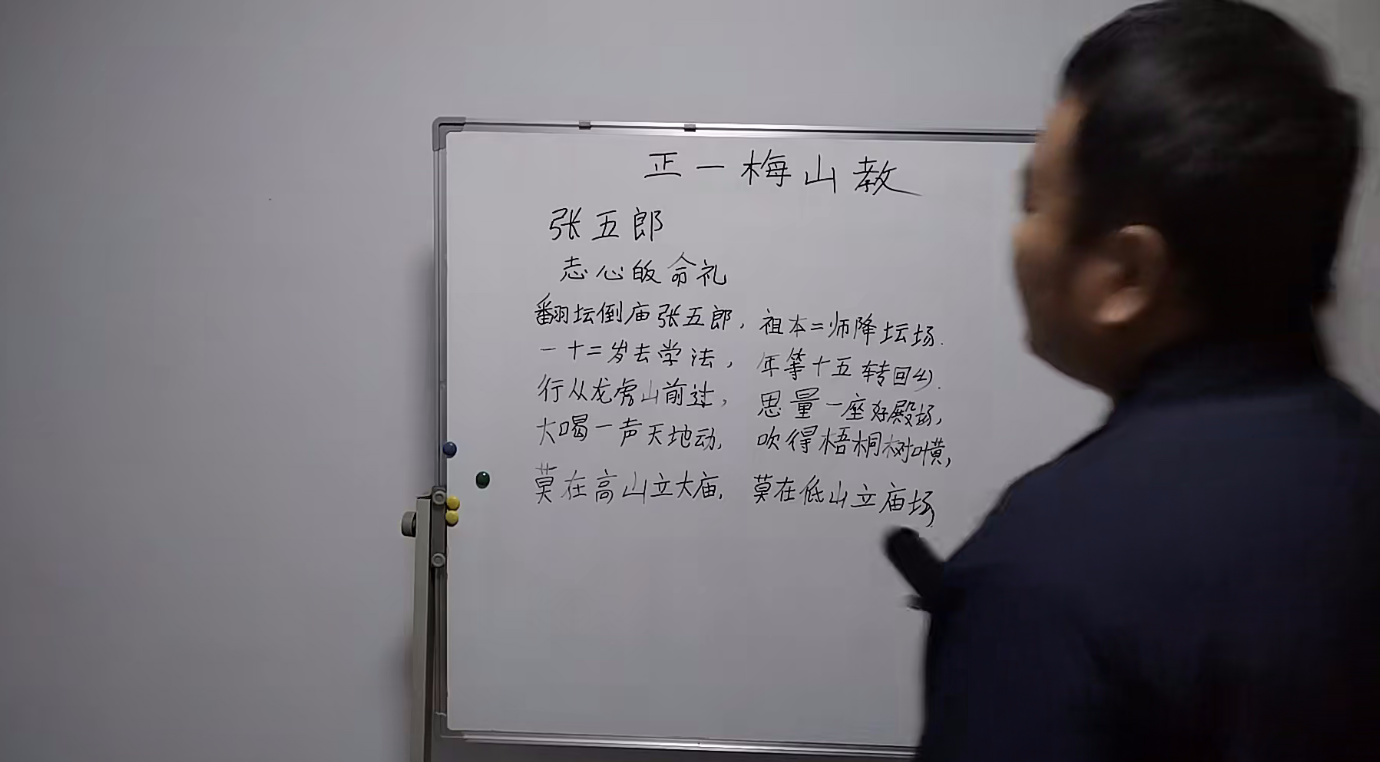 正一梅山教
张五郎
志心皈命礼
翻坛倒庙张五郎，祖本二师降坛场.
一十二岁去学法，年等十五转回乡.
行从龙虎山前过，思量一座好殿场，
大喝一声天地动，吹得梧桐树叶横，
莫在高山立大庙，莫在低山立庙场，